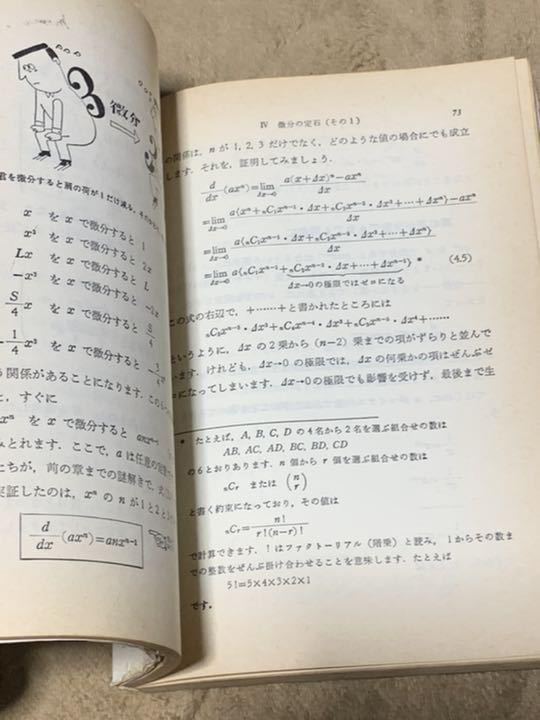 微分
君を微分すると肩の荷が1だけ減る.
x を x で微分すると 1
x² を x で微分すると 2x
Lx を x で微分すると L
-x² を x で微分すると -2x
S/4 x を x で微分すると S/4
-1/4 x³ を x で微分すると -3/4
う関係があることになります.
に, すぐに
xⁿ を x で微分すると anxⁿ⁻¹
みとれます. ここで, a は任意の
たちが, 前の章までの謎解きで,
実証したのは, xⁿ の n が 1 と 2 と
d/dx (axⁿ)=anxⁿ⁻¹
IV 微分の定石 (その1) 73
の関係は, n が 1, 2, 3 だけでなく, どのような値の場合にでも成立
します. それを, 証明してみましょう.
d/dx (axⁿ)=lim Δx→0 a(x+Δx)ⁿ-axⁿ/Δx
=lim Δx→0 a{xⁿ+ₙC₁xⁿ⁻¹・Δx+ₙC₂xⁿ⁻²・Δx²+ₙC₃xⁿ⁻³・Δx³+…+Δxⁿ}-axⁿ/Δx
=lim Δx→0 a{ₙC₁xⁿ⁻¹・Δx+ₙC₂xⁿ⁻²・Δx²+…+Δxⁿ}/Δx
=lim Δx→0 a{ₙC₁xⁿ⁻¹+ₙC₂xⁿ⁻²・Δx+…+Δxⁿ⁻¹} * (4.5)
Δx→0 の極限ではゼロになる
この式の右辺で, +……+ と書かれたところには
ₙC₃xⁿ⁻³・Δx²+ₙC₄xⁿ⁻⁴・Δx³+ₙC₅xⁿ⁻⁵・Δx⁴+……
というように, Δx の 2 乗から (n-2) 乗までの項がずらりと並んで
います. けれども, Δx→0 の極限では, Δx の何乗かの項はぜんぶゼ
になってしまいます. Δx→0 の極限でも影響を受けず, 最後まで生
* たとえば, A, B, C, D の 4 名から 2 名を選ぶ組合せの数は
AB, AC, AD, BC, BD, CD
の 6 とおりあります. n 個から r 個を選ぶ組合せの数は
ₙCᵣ または (n r)
と書く約束になっており, その値は
ₙCᵣ=n!/r!(n-r)!
で計算できます. ! はファクトーリアル (階乗) と読み, 1 からその数ま
での整数をぜんぶ掛け合わせることを意味します. たとえば
5!=5×4×3×2×1
です.